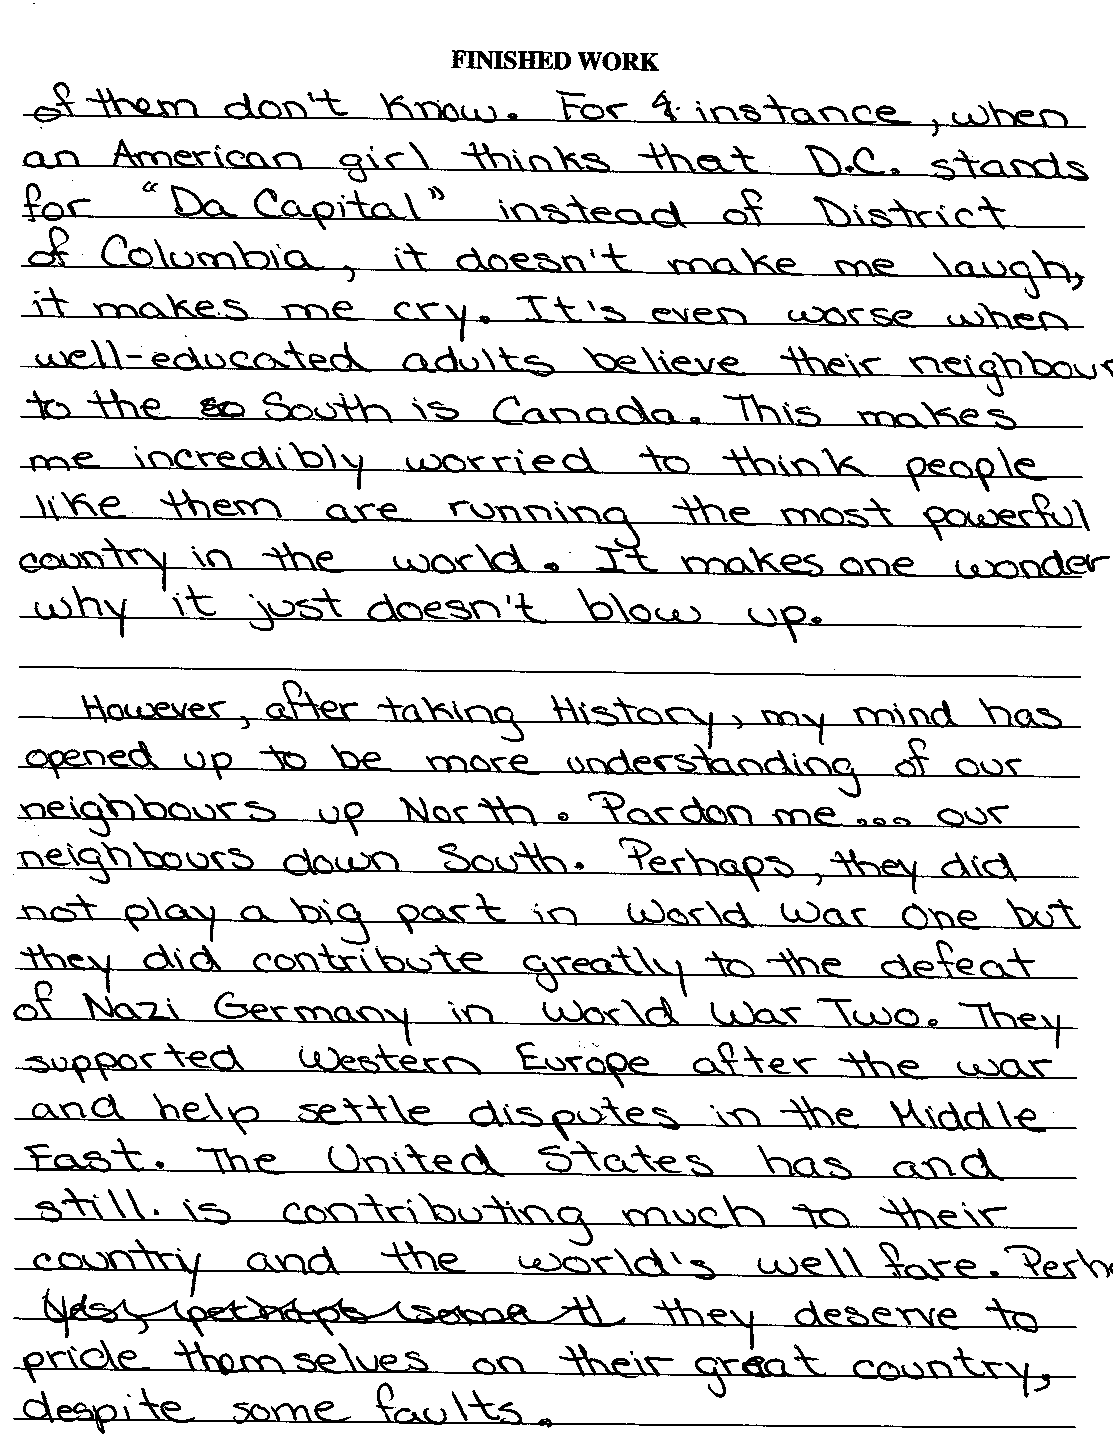 FINISHED WORK
of them don't know. For instance, when
an American girl thinks that D.C. stands
for "Da Capital" instead of District
of Columbia, it doesn't make me laugh,
it makes me cry. It's even worse when
well-educated adults believe their neighbour
to the so South is Canada. This makes
me incredibly worried to think people
like them are running the most powerful
country in the world. It makes one wonder
why it just doesn't blow up.
However, after taking History, my mind has
opened up to be more understanding of our
neighbours up North. Pardon me... our
neighbours down South. Perhaps, they did
not play a big part in World War One but
they did contribute greatly to the defeat
of Nazi Germany in World War Two. They
supported Western Europe after the war
and help settle disputes in the Middle
East. The United States has and
still is contributing much to their
country and the world's well fare. Perh
Yes, perhaps some th they deserve to
pride themselves on their great country,
despite some faults.